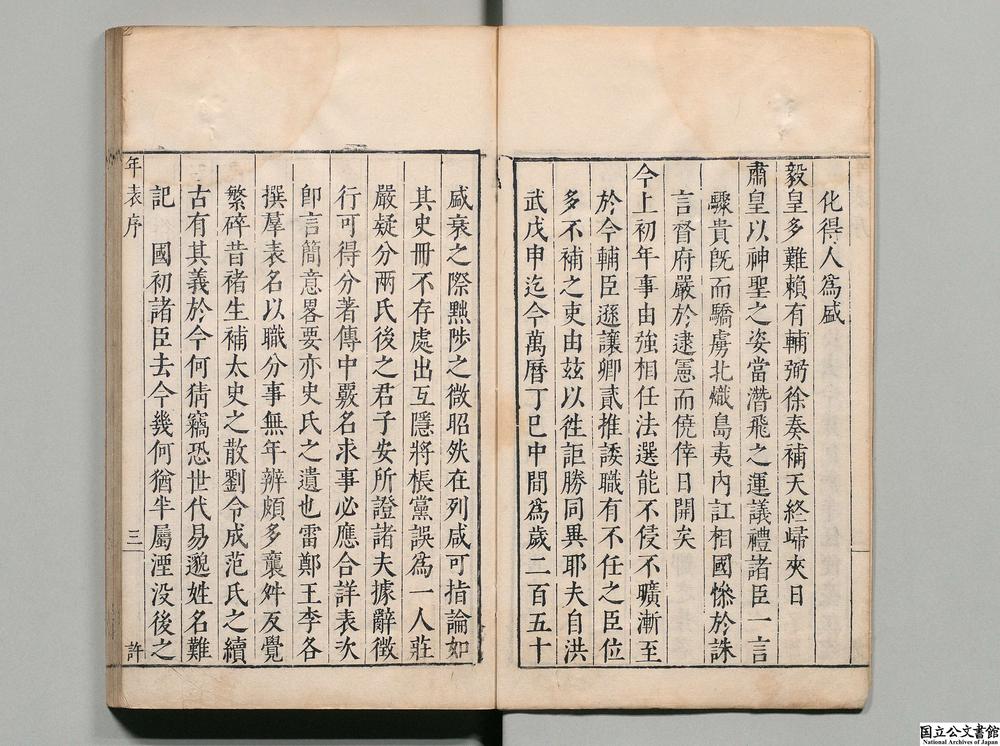 化得人爲盛
毅皇多難賴有輔弼徐奏補天終歸夾日
肅皇以神聖之姿當潛飛之運議禮諸臣一言
驟貴旣而驕虜北熾島夷内訌相國慘於誅
言督府嚴於逮憲而僥倖日開矣
今上初年事由強相任法選能不侵不曠漸至
於今輔臣遜讓卿貳推諉職有不任之臣位
多不補之吏由玆以徃詎勝同異耶夫自洪
武戊申迄今萬曆丁巳中間爲歲二百五十
盛衰之際黜陟之微昭然在列咸可指論如
其史冊不存處出互隱將悵黨誤爲一人莊
嚴疑分兩氏後之君子安所證諸夫據辭徵
行可得分著傳中覈名求事必應合詳表次
卽言簡意畧要亦史氏之遺也雷鄭王李各
撰羣表名以職分事無年辨頗多龐舛反覺
繁碎昔褚生補太史之散劉令成范氏之續
古有其義於今何猜竊恐世代易邈姓名難
記 國初諸臣去今幾何猶半屬湮没後之
年表序 三 許
国立公文書館
National Archives of Japan